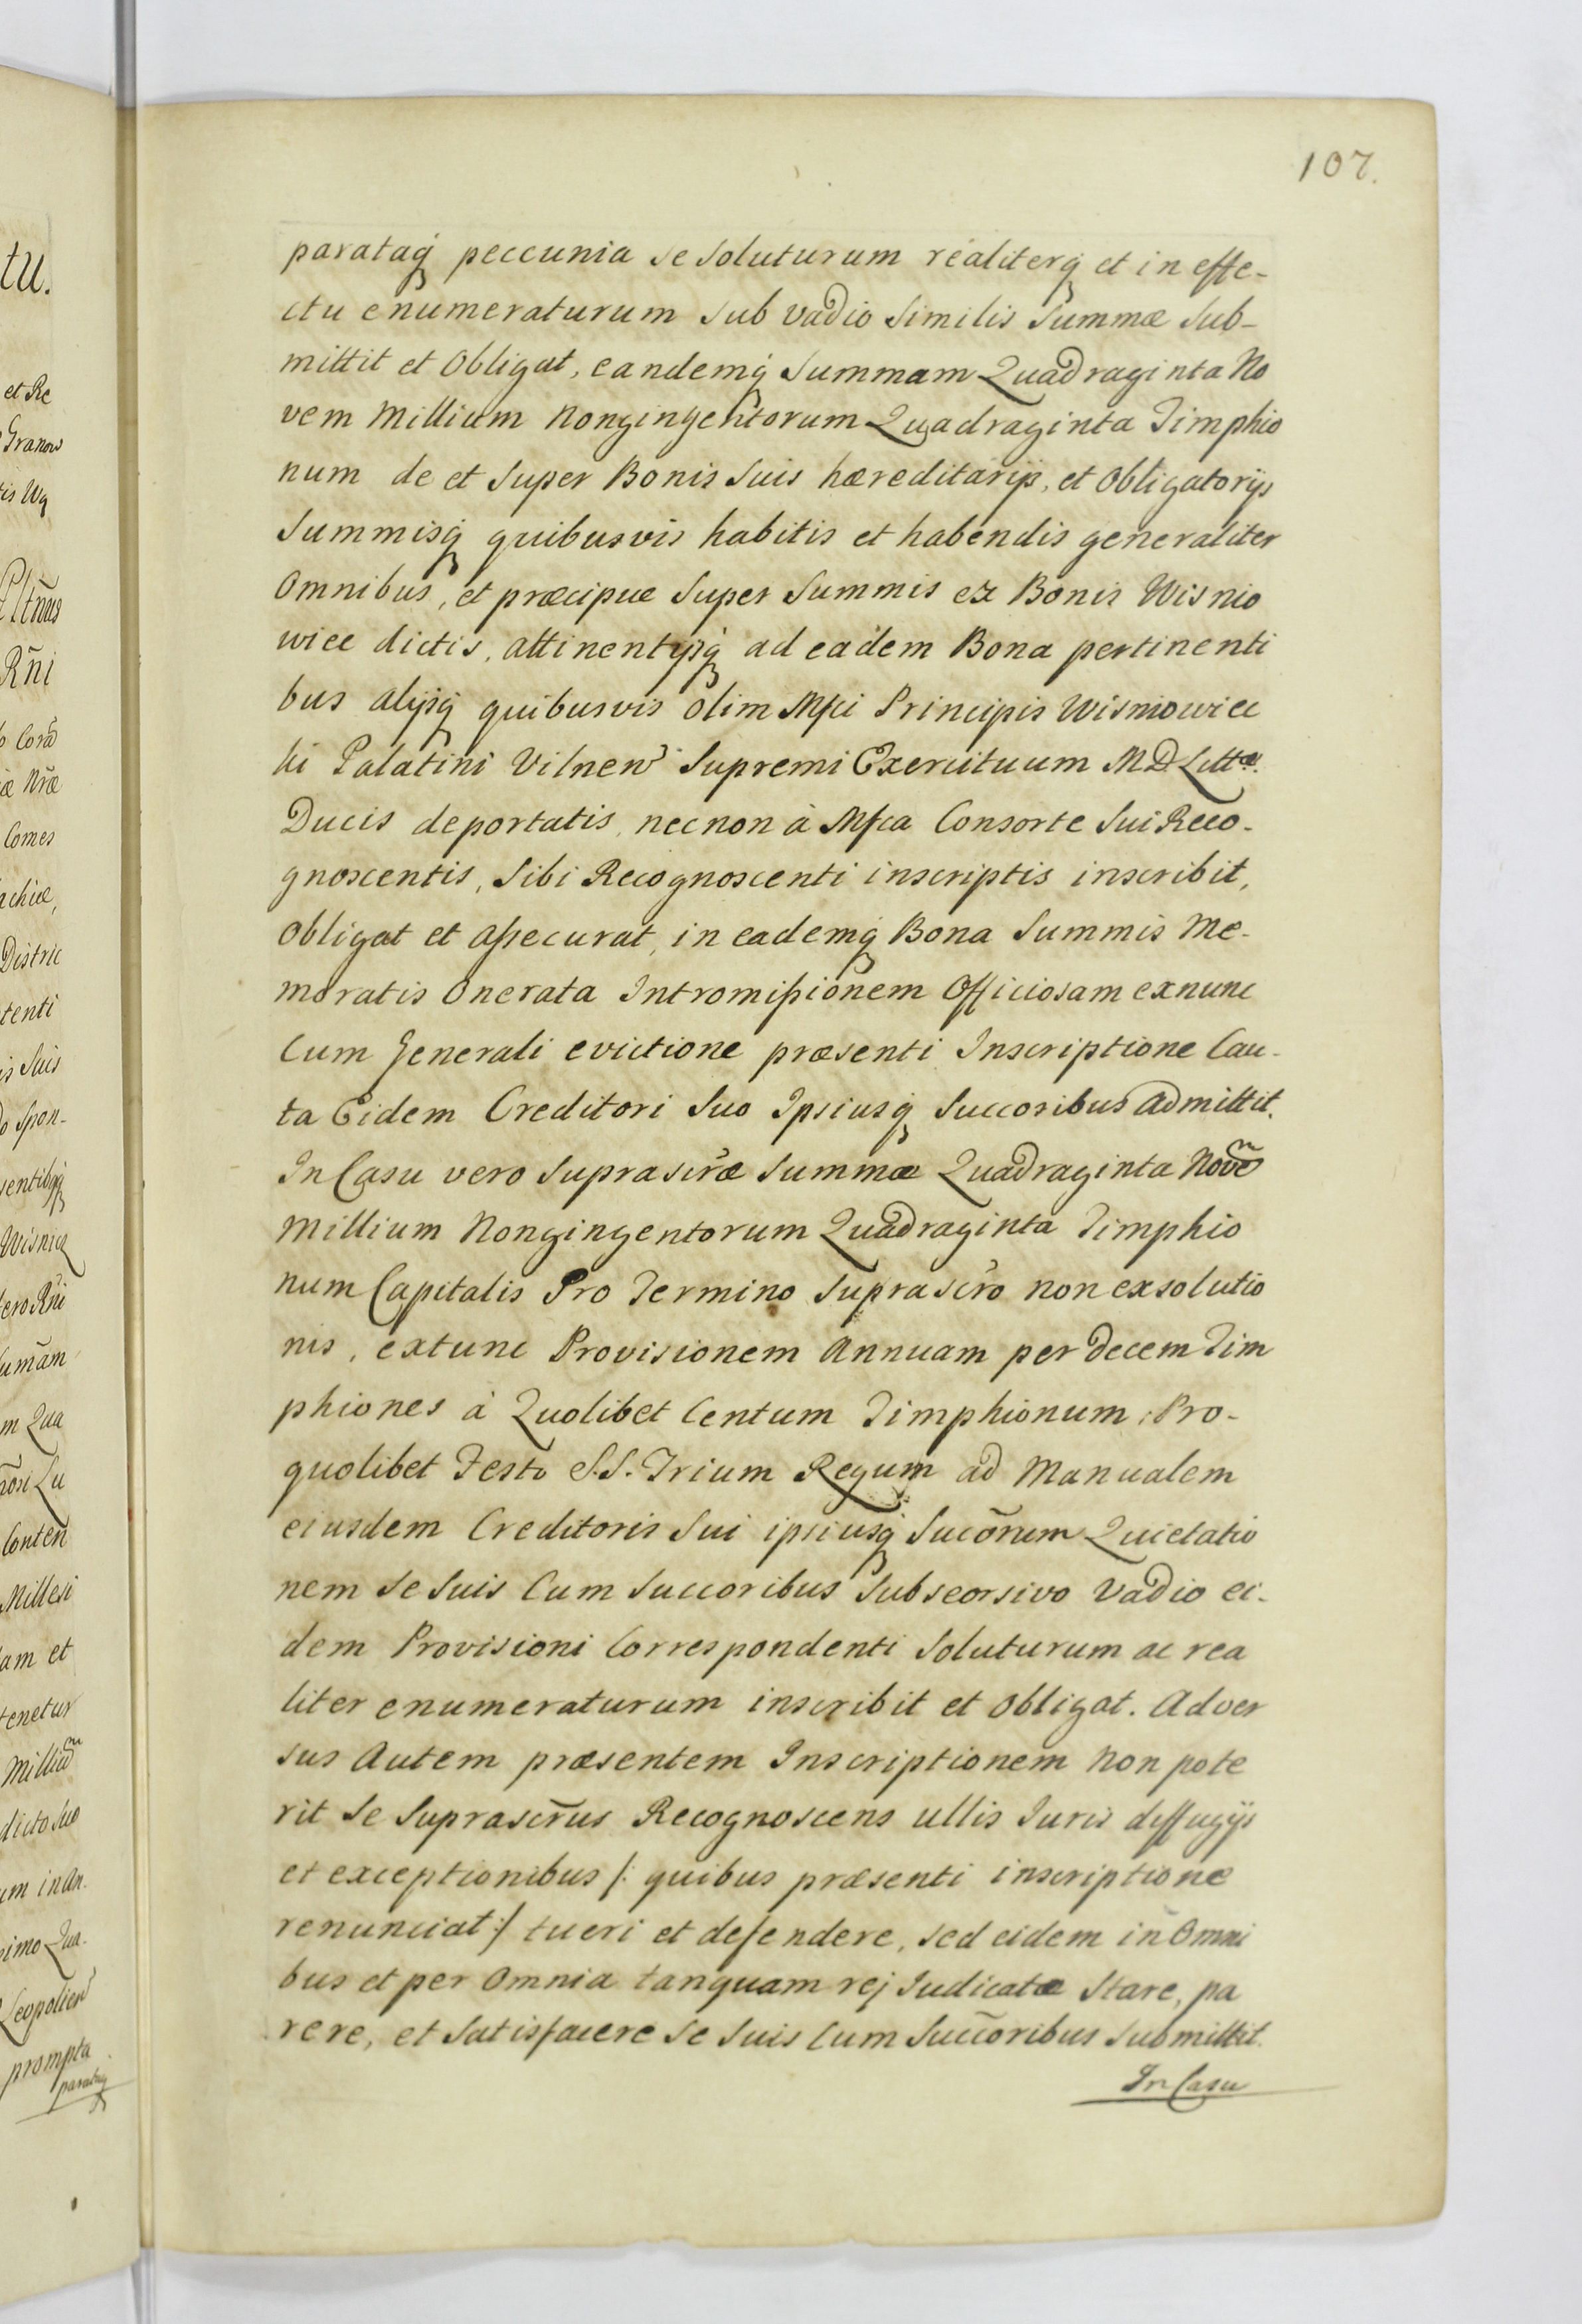 107.
parataq́ peccunia se soluturum realiterq́ et in effe-
ctu enumeraturum sub vadio similis summæ sub-
mittit et obligat, eandemq́ summam Quadraginta No
vem Millium Nongingentorum Quadraginta Timphio
num de et super Bonis suis hæreditarijs, et obligatorijs
summisq́ quibusvis habitis et habendis generaliter
Omnibus, et præcipue super summis ex Bonis Wisnio
wiec dictis, attinentijsq́ ad eadem Bona pertinenti
bus alijsq́ quibusvis olim Mfci Principis Wisniowiec
ki Palatini Vilnen Supremi Exercituum M D Littæ.
Ducis deportatis, necnon à Mfca Consorte sui Reco-
gnoscentis, sibi Recognoscenti inscriptis inscribit,
obligat et assecurat, in eademq́ Bona summis Me-
moratis Onerata Intromissionem Officiosam exnunc
Cum Generali evictione præsenti Inscriptione Cau-
ta Eidem Creditori suo Ipsiusq́ succoribus admittit.
In Casu vero suprascr̃æ summæ Quadraginta Novẽ
Millium Nongingentorum Quadraginta Timphio
num Capitalis Pro Termino suprascr̃o non exsolutio
nis, extunc Provisionem Annuam per decem Tim
phiones à Quolibet Centum Timphionum, Pro-
quolibet Festo S.S. Trium Regum ad Manualem
eiusdem Creditoris sui ipsiusq́ sucõrum Quietatio
nem se suis Cum succoribus sub seorsivo vadio ei-
dem Provisioni Correspondenti soluturum ac rea
liter enumeraturum inscribit et obligat. Adver
sus Autem præsentem Inscriptionem Non pote
rit se suprascr̃us Recognoscens ullis Juris diffugijs
et exceptionibus /: quibus præsenti inscriptione
renunciat :/ tueri et defendere, sed eidem in Omni
bus et per Omnia tanquam rej Judicatæ stare, pa
rere, et satisfacere se suis cum succ̃oribus submittit.
In Casu